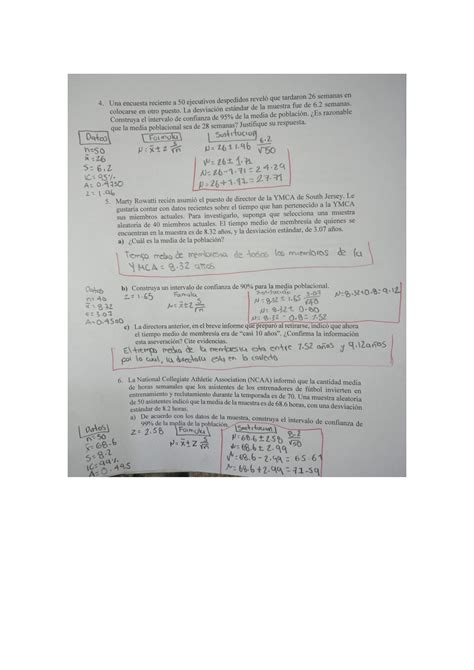 4. Una encuesta reciente a 50 ejecutivos despedidos reveló que tardaron 26 semanas en
colocarse en otro puesto. La desviación estándar de la muestra fue de 6.2 semanas.
Construya el intervalo de confianza de 95% de la media de población. ¿Es razonable
que la media poblacional sea de 28 semanas? Justifique su respuesta.
Datos Formula Sustitucion
n=50
x̄=26
S=6.2
IC=95%
A=0.4750
Z=1.96
μ=x̄±Z S/√n
μ=26±1.96 6.2/√50
μ=26±1.71
μ=26-1.71=24.29
μ=26+1.72=27.71
5. Marty Rowatti recién asumió el puesto de director de la YMCA de South Jersey. Le
gustaría contar con datos recientes sobre el tiempo que han pertenecido a la YMCA
sus miembros actuales. Para investigarlo, suponga que selecciona una muestra
aleatoria de 40 miembros actuales. El tiempo medio de membresía de quienes se
encuentran en la muestra es de 8.32 años, y la desviación estándar, de 3.07 años.
a) ¿Cuál es la media de la población?
Tiempo medio de membresia de todos los miembros de la
YMCA = 8.32 años
b) Construya un intervalo de confianza de 90% para la media poblacional.
Datos
n=40
x=8.32
s=3.07
A=0.4500
Z=1.65
Formula
μ=x̄±Z S/√n
Sustitución
μ=8.32±1.65 3.07/√40
μ=8.32±0.80
μ=8.32-0.8=7.52
μ=8.32+0.8=9.12
c) La directora anterior, en el breve informe que preparó al retirarse, indicó que ahora
el tiempo medio de membresía era de “casi 10 años”. ¿Confirma la información
esta aseveración? Cite evidencias.
El tiempo medio de la membresia esta entre 7.52 años y 9.12 años
por lo cual, la directora esta en lo
6. La National Collegiate Athletic Association (NCAA) informó que la cantidad media
de horas semanales que los asistentes de los entrenadores de fútbol invierten en
entrenamiento y reclutamiento durante la temporada es de 70. Una muestra aleatoria
de 50 asistentes indicó que la media de la muestra es de 68.6 horas, con una desviación
estándar de 8.2 horas.
a) De acuerdo con los datos de la muestra, construya el intervalo de confianza de
99% de la media de la población.
Datos
n=50
x̄=68.6
S=8.2
IC=99%
A=0.495
Z=2.58
Formula
μ=x̄±Z S/√n
Sustitución
μ=68.6±2.58 8.2/√50
μ=68.6±2.99
μ=68.6-2.99=65.61
μ=68.6+2.99=71.59